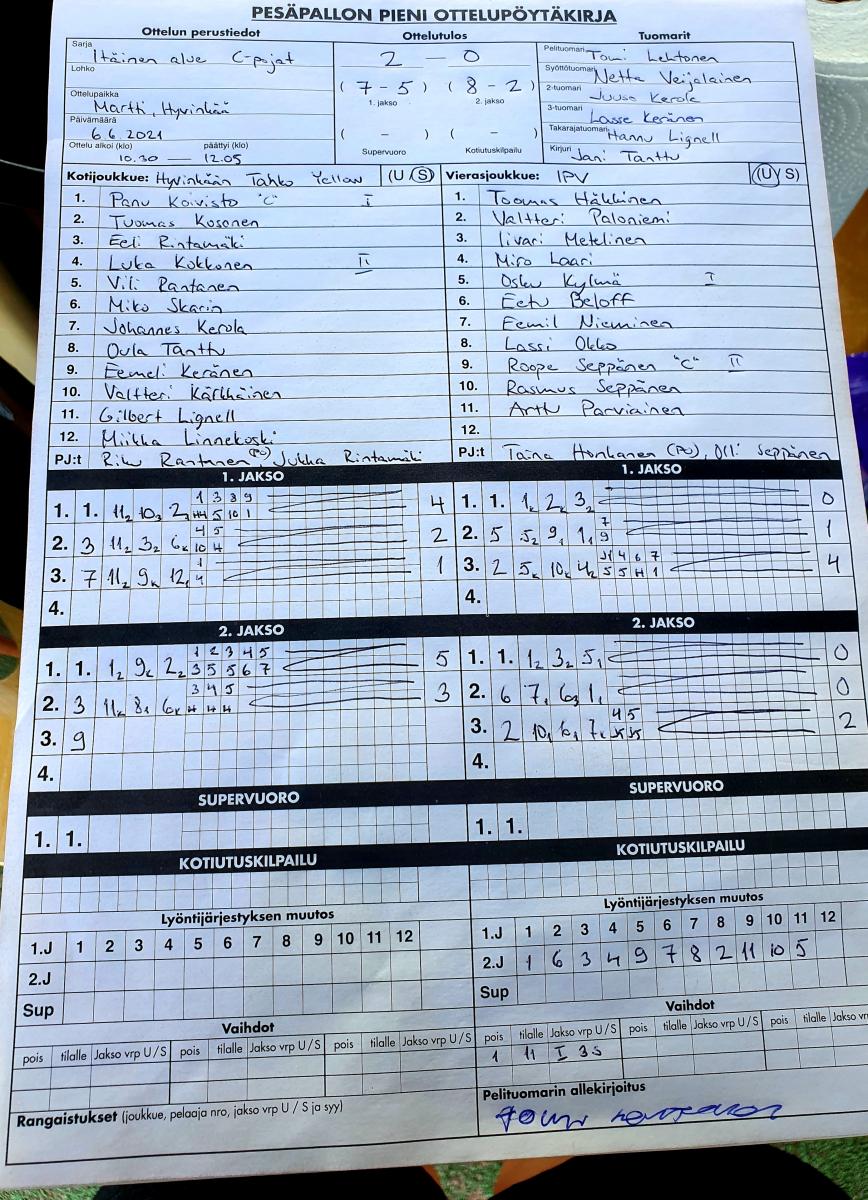 PESÄPALLON PIENI OTTELUPÖYTÄKIRJA
Ottelun perustiedot
Ottelutulos
Tuomarit
Sarja Itäinen alue C-pojat
Lohko
Ottelupaikka Martti, Hyvinkää
Päivämäärä 6.6.2021
Ottelu alkoi (klo) päättyi (klo)
10.30 — 12.05
2 — 0
(7-5) (8-2)
1. jakso 2. jakso
( - ) ( - )
Supervuoro Kotiutuskilpailu
Pelituomari Tomi Lehtonen
Syöttötuomari Netta Veijalainen
2-tuomari Juuso Kerola
3-tuomari Lasse Keränen
Takarajatuomari Hannu Lignell
Kirjuri Jani Tanttu
Kotijoukkue: Hyvinkään Tahko Yellow (U/S)
1. Panu Koivisto "C" I
2. Tuomas Kosonen
3. Eeli Rintamäki
4. Luka Kokkonen II
5. Vili Rantanen
6. Miko Skarin
7. Johannes Kerola
8. Oula Tanttu
9. Eemeli Keränen
10. Valtteri Kärkkäinen
11. Gilbert Lignell
12. Miikka Linnekoski
PJ:t Riku Rantanen (PV) Jukka Rintamäki
Vierasjoukkue: IPV (U/S)
1. Toomas Häkkinen
2. Valtteri Paloniemi
3. Iivari Metelinen
4. Miro Laari
5. Osku Kylmä I
6. Eetu Beloff
7. Eemil Nieminen
8. Lassi Okko
9. Roope Seppänen "C" II
10. Rasmus Seppänen
11. Arttu Parviainen
12.
PJ:t Taina Honkanen (PV), Olli Seppänen
1. JAKSO
1. 1. 11₂ 10₃ 2₂ 1 3 3 9 4
5 10 1
2. 3 11₂ 3₂ 6ₖ 4 5 2
10 4
3. 7 11₂ 9ₖ 12₁ 1 1
4
4.
1. JAKSO
1. 1. 1ₖ 2ₖ 3₂ 0
2. 5 5₂ 9₁ 1₁ 7 1
9
3. 2 5ₖ 10ₖ 4ₖ 4 6 7 4
5 5 1
4.
2. JAKSO
1. 1. 1₂ 9ₖ 2₂ 1 2 3 4 5 5
3 5 5 6 7
2. 3 11ₖ 8₁ 6ₖ 3 4 5 3
4 4 4
3. 9
4.
2. JAKSO
1. 1. 1₂ 3₂ 5₁ 0
2. 6 7₁ 6₃ 1₁ 0
3. 2 10₁ 6₁ 7ₖ 4 5 2
4.
SUPERVUORO
1. 1.
SUPERVUORO
1. 1.
KOTIUTUSKILPAILU
KOTIUTUSKILPAILU
Lyöntijärjestyksen muutos
1.J 1 2 3 4 5 6 7 8 9 10 11 12
2.J
Sup
Lyöntijärjestyksen muutos
1.J 1 2 3 4 5 6 7 8 9 10 11 12
2.J 1 6 3 4 9 7 8 2 11 10 5
Sup
Vaihdot
pois tilalle Jakso vrp U/S pois tilalle Jakso vrp U/S pois tilalle Jakso vrp U/S
Vaihdot
pois tilalle Jakso vrp U/S pois tilalle Jakso vrp U/S pois tilalle Jakso vr
1 11 I 3S
Rangaistukset (joukkue, pelaaja nro, jakso vrp U / S ja syy)
Pelituomarin allekirjoitus